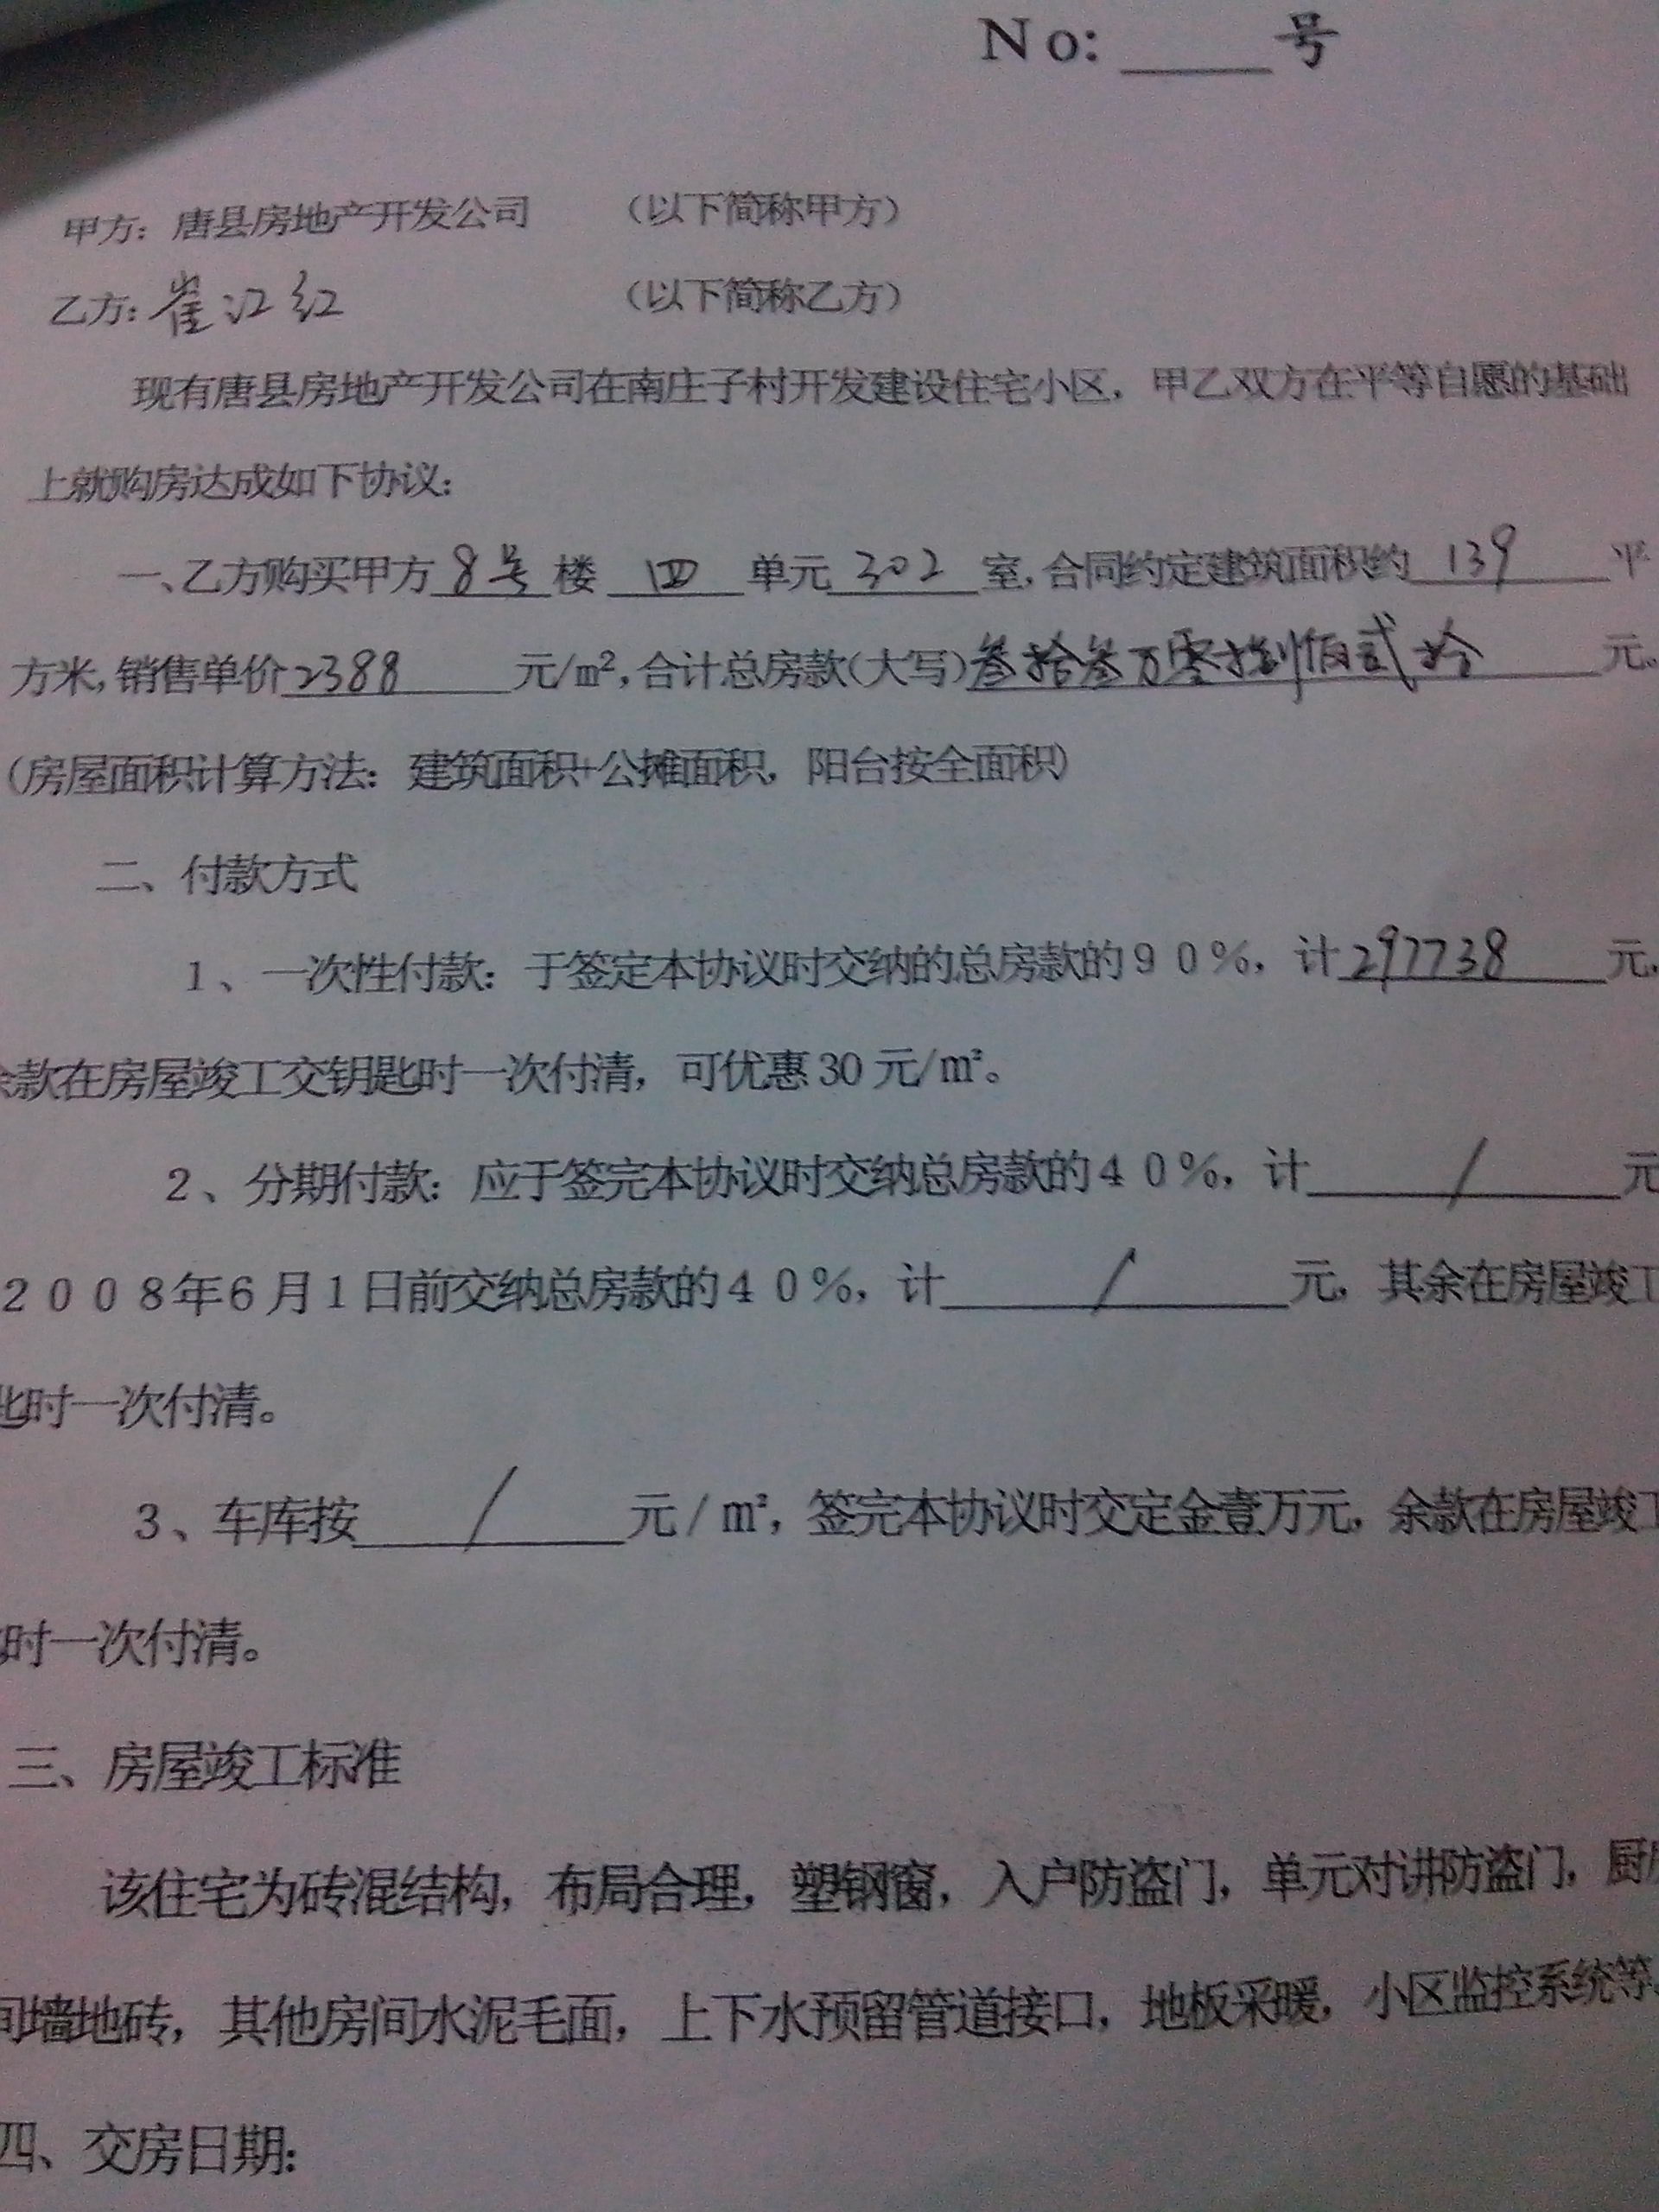 No:____号
甲方：唐县房地产开发公司 （以下简称甲方）
乙方：崔江红 （以下简称乙方）
现有唐县房地产开发公司在南庄子村开发建设住宅小区，甲乙双方在平等自愿的基础
上就购房达成如下协议：
一、乙方购买甲方8号楼四单元302室，合同约定建筑面积约139平
方米，销售单价2388元/㎡，合计总房款（大写）叁拾叁万零捌佰贰拾元。
（房屋面积计算方法：建筑面积+公摊面积，阳台按全面积）
二、付款方式
1、一次性付款：于签定本协议时交纳的总房款的90%，计297738元，
余款在房屋竣工交钥匙时一次付清，可优惠30元/㎡。
2、分期付款：应于签完本协议时交纳总房款的40%，计/元
2008年6月1日前交纳总房款的40%，计/元，其余在房屋竣工
匙时一次付清。
3、车库按/元/㎡，签完本协议时交定金壹万元，余款在房屋竣工
时一次付清。
三、房屋竣工标准
该住宅为砖混结构，布局合理，塑钢窗，入户防盗门，单元对讲防盗门，厨
间墙地砖，其他房间水泥毛面，上下水预留管道接口，地板采暖，小区监控系统等
四、交房日期：